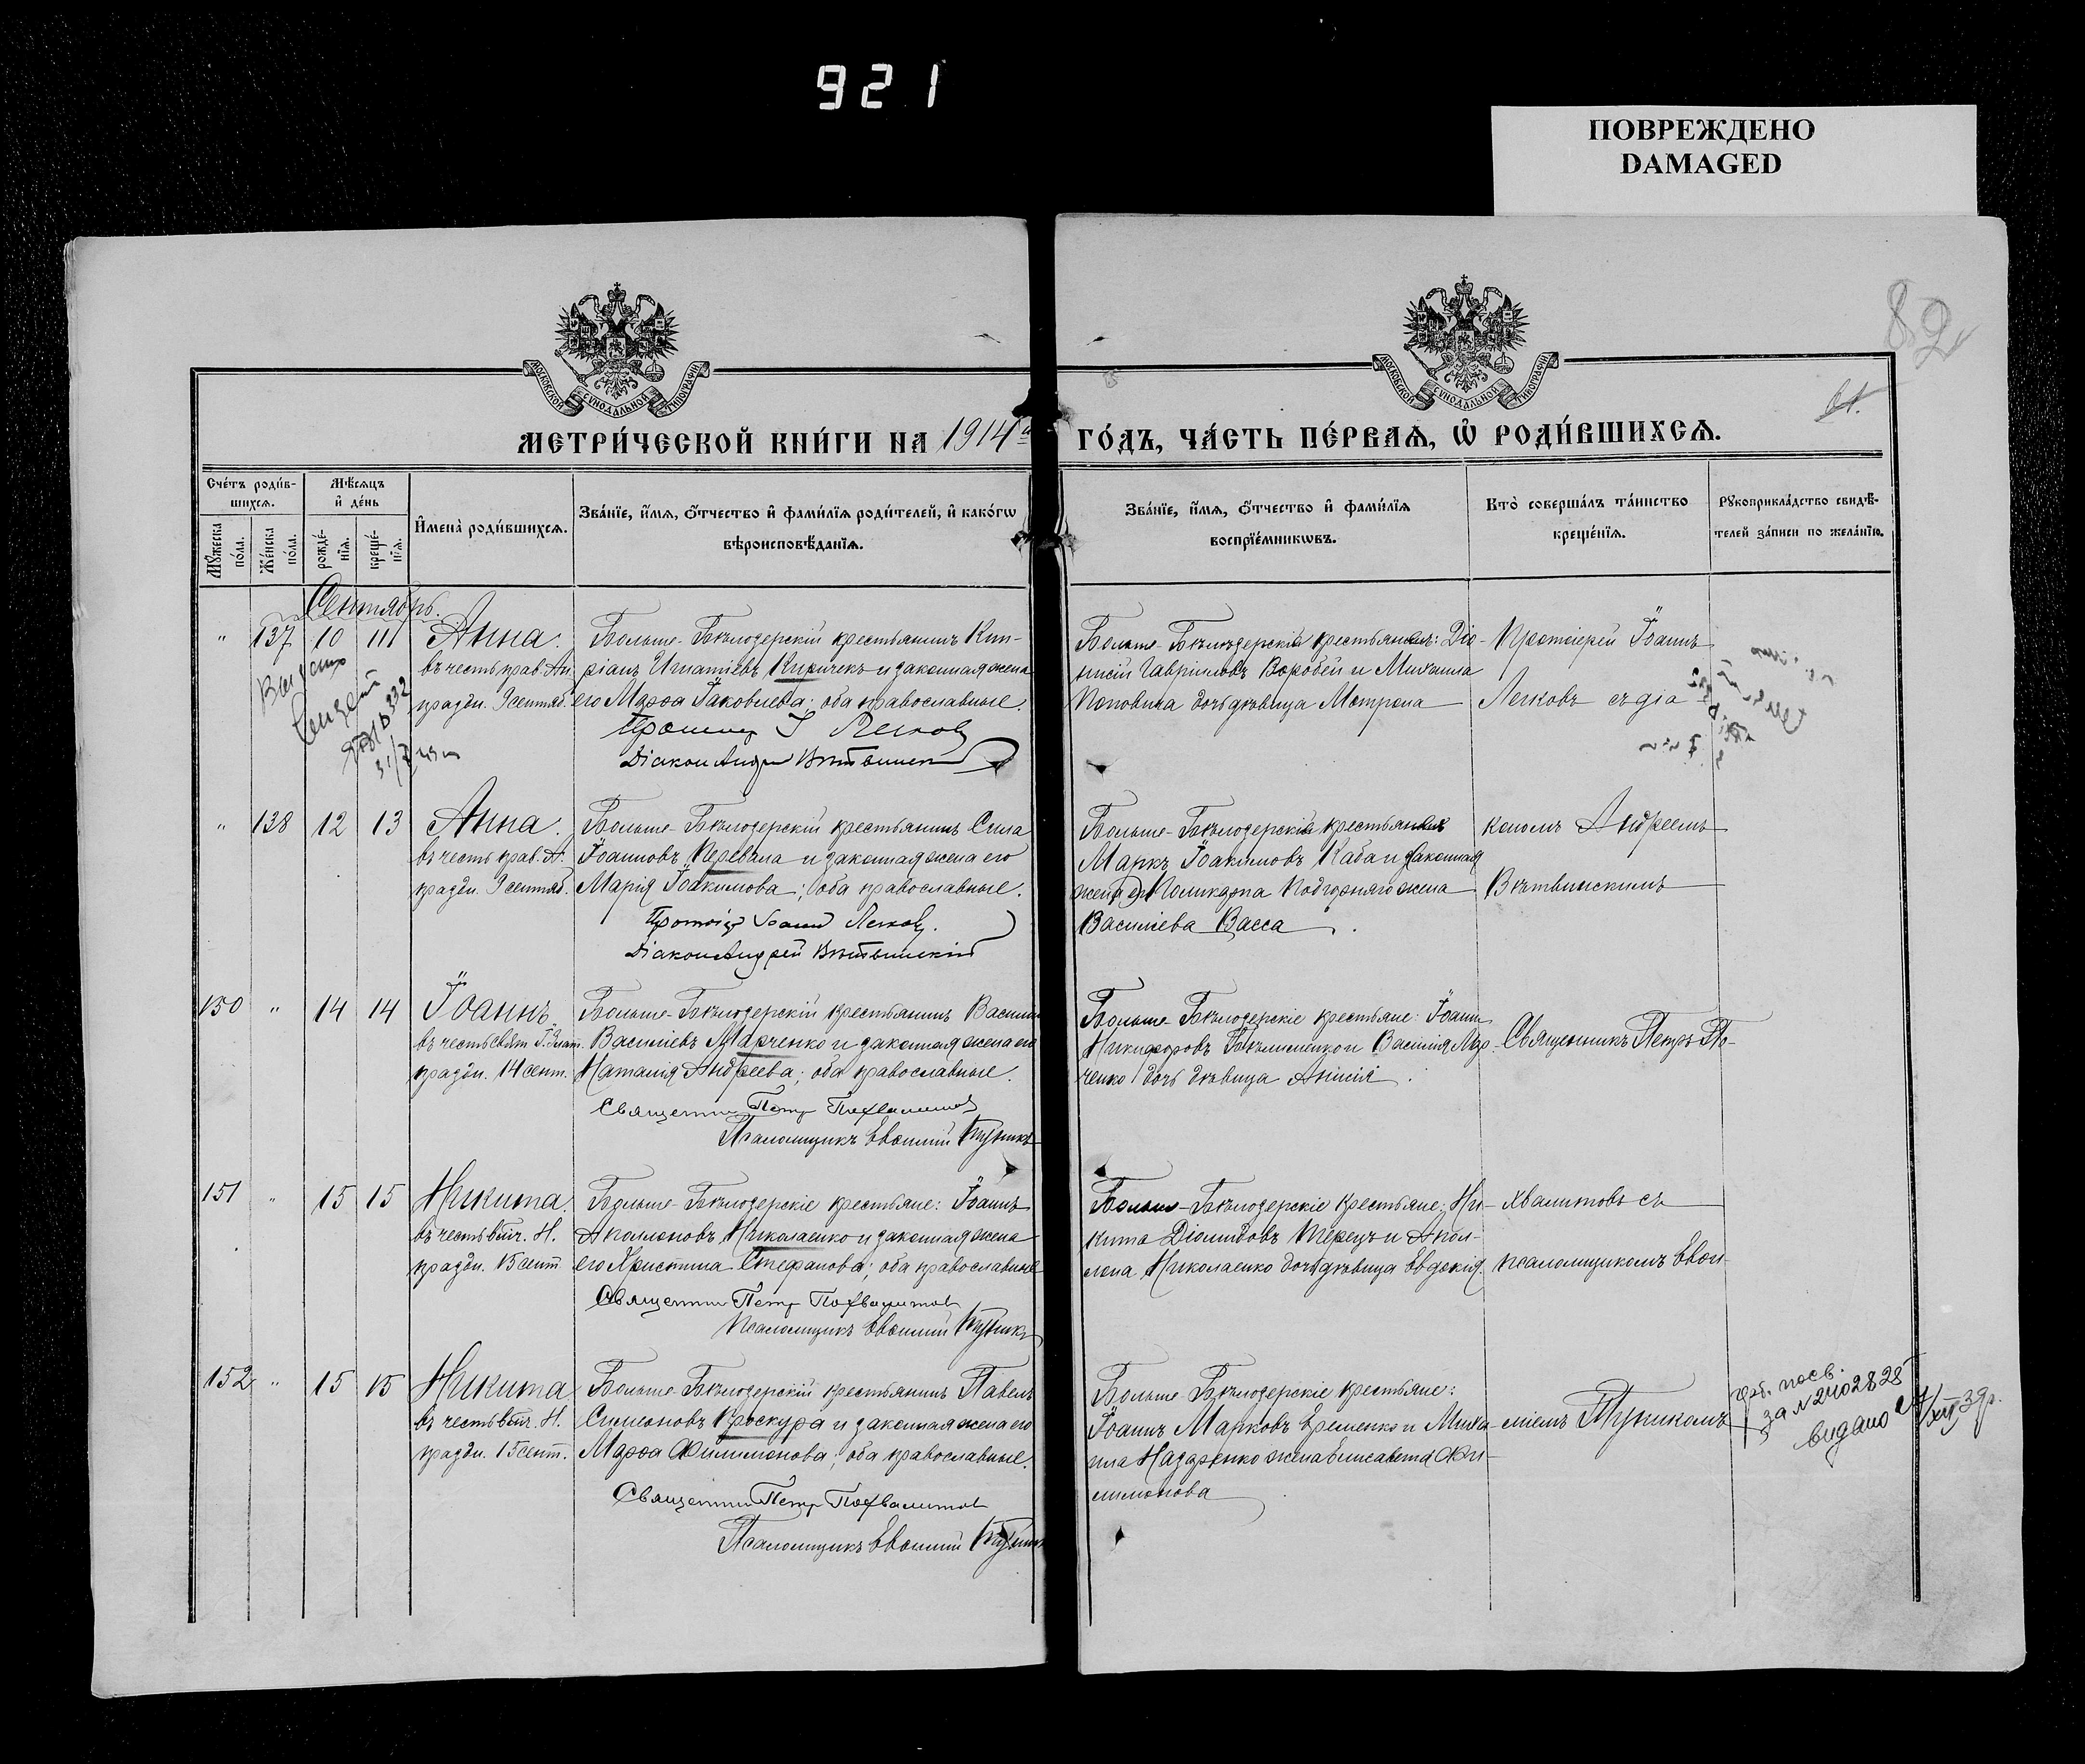 921
ПОВРЕЖДЕНО
DAMAGED
82
МОСКОВСКОЙ СУНОДАЛЬНОЙ ТИПОГРАФІИ
МОСКОВСКОЙ СУНОДАЛЬНОЙ ТИПОГРАФІИ
МЕТРИ́ЧЕСКОЙ КНИ́ГИ НА 1914й
ГО́ДЪ, ЧА́СТЬ ПЕ́РВАѦ, Ѡ҆ РОДИ́ВШИХСѦ.
Сче́тъ роди́в-
шихсѧ.
Мѣ́сѧцъ
и҆ де́нь
Мꙋ́жеска
по́ла.
Же́нска
по́ла.
рожде́-
нїѧ.
креще́-
нїѧ.
И҆мена̀ роди́вшихсѧ.
Зва́нїе, и҆́мѧ, ѻ҆́тчество и҆ фами́лїѧ роди́телей, и҆ како́гѡ
вѣроисповѣ́данїѧ.
Зва́нїе, и҆́мѧ, ѻ҆́тчество и҆ фами́лїѧ
воспрїе́мникѡвъ.
Кто̀ соверша́лъ та́инство
креще́нїѧ.
Рꙋкоприкла́дство свидѣ́-
телей за́писи по жела́нїю.
Сентябрь.
" 137 10 11 Анна.
въ честь прав. Ан.
праздн. 9 сентяб.
Больше-Бѣлозерскій крестьянинъ Кип-
ріанъ Игнатіевъ Киричекъ и законная жена
его Марѳа Іаковлева; оба православные.
Діаконъ Андрей Вѣтвинскій
Больше-Бѣлозерскій крестьянинъ: Діо-
нисій Гавріиловъ Воробей и Михаила
Поповича дочь дѣвица Матрона
Протоіерей Іоаннъ
Легковъ съ діа-
" 138 12 13 Анна.
въ честь прав. А.
праздн. 9 сентяб.
Больше-Бѣлозерскій крестьянинъ Сила
Іоанновъ Перевала и законная жена его
Марія Іоакимова; оба православные.
Протоіер Іоанн Легков.
Діаконъ Андрей Вѣтвинскій
Больше-Бѣлозерскій крестьянинъ
Маркъ Іоакимовъ Каба и
Поликарпа Подгорняго жена
Василіева Васса
кономъ Андреемъ
Вѣтвинскимъ
150 " 14 14 Іоаннъ
въ честь свят. І. Злат.
праздн. 14 сент.
Больше-Бѣлозерскій крестьянинъ Василій
Василіевъ Марченко и законная жена его
Наталія Андреева; оба православные.
Священник Петр Похвалитов
Псаломщикъ Евѳимій Тупикъ
Больше-Бѣлозерскіе крестьяне: Іоаннъ
Никифоровъ и Василія Мар-
ченко дочь дѣвица Анисія.
Священникъ Петръ По-
151 " 15 15 Никита.
въ честь в.муч. Н.
праздн. 15 сент.
Больше-Бѣлозерскіе крестьяне: Іоаннъ
Аполлоновъ Николаенко и законная жена
его Христина Стефанова; оба православные
Священник Петр Похвалитов
Псаломщикъ Евѳимій Тупикъ
Больше-Бѣлозерскіе крестьяне: Ни-
кита Діомидовъ Терецъ и Апол-
лона Николаенко дочь дѣвица Евдокія.
хвалитовъ съ
псаломщикомъ Евѳи-
152 " 15 15 Никита
въ честь в.муч. Н.
праздн. 15 сент.
Больше-Бѣлозерскій крестьянинъ Павелъ
Симеоновъ Проскура и законная жена его
Марѳа Филимонова; оба православные.
Священник Петр Похвалитов
Псаломщикъ Евѳимій Тупикъ
Больше-Бѣлозерскіе крестьяне:
Іоаннъ Марковъ Еременко и Миха-
ила Назаренко жена Елисавета Фи-
лимонова
міемъ Тупикомъ
за №2402828
видано